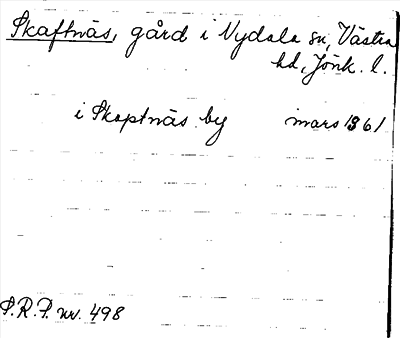 Skaftnäs, gård i Nydala sn, Västra
hd, Jönk. l.
i Skaptnäs by mars 1361
S.R.P. nr. 498